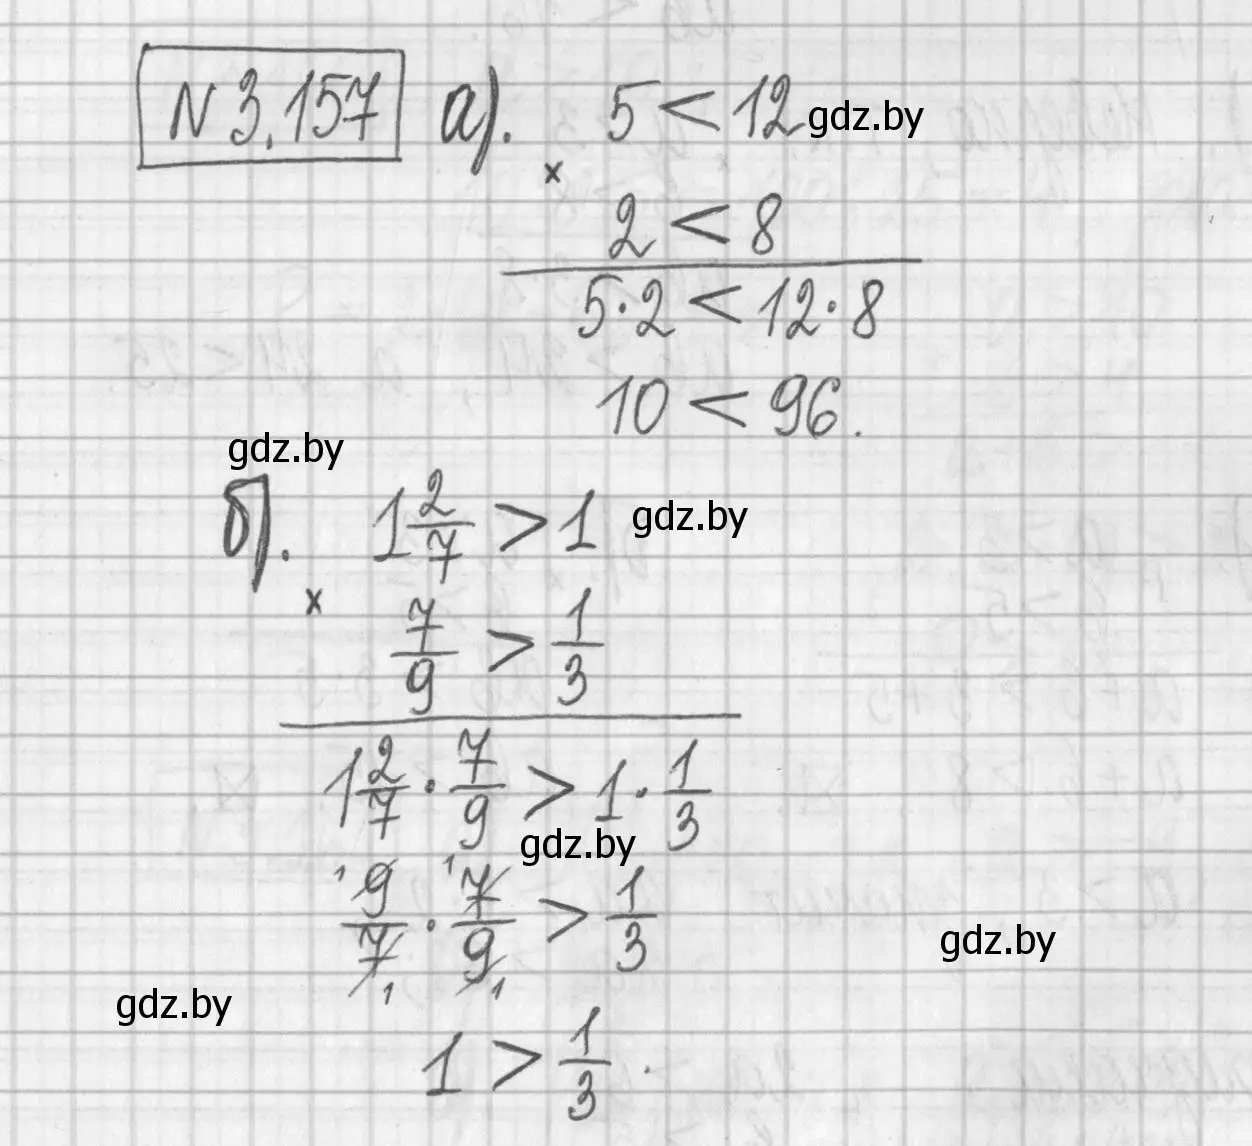 N 3.157 а). 5 < 12 gdz.by
×
2 < 8
5·2 < 12·8
10 < 96.
gdz.by
б). 1 2/7 > 1 gdz.by
×
7/9 > 1/3
1 2/7 · 7/9 > 1 · 1/3
gdz.by
1 9/7 1 · 1 7/9 1 > 1/3
gdz.by
gdz.by
1 > 1/3.